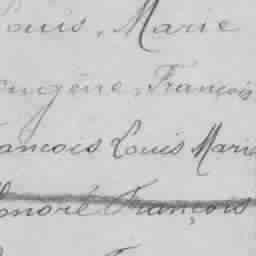 Louis, Marie
Eugène, François
François Louis Marie
Honoré François